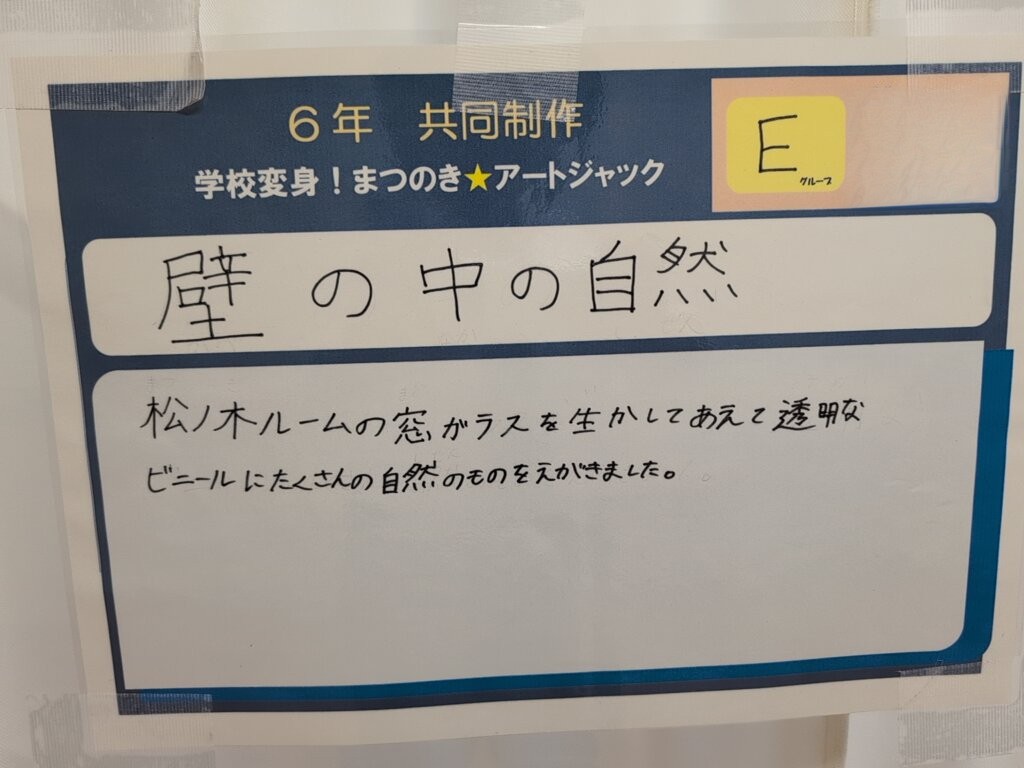 6年 共同制作
学校変身！まつのき★アートジャック
E
グループ
壁の中の自然
松ノ木ルームの窓ガラスを生かしてあえて透明な
ビニールにたくさんの自然のものをえがきました。